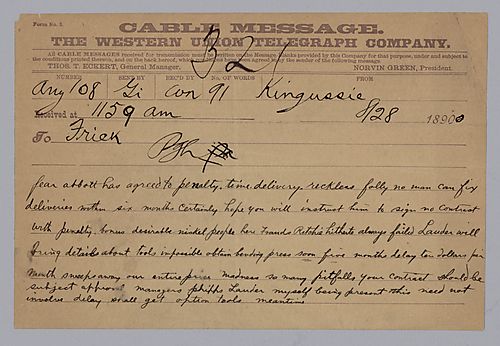 Form No. 1.
B 2
CABLE MESSAGE.
THE WESTERN UNION TELEGRAPH COMPANY.
All CABLE MESSAGES received for transmission must be written on the Message Blanks provided by this Company for that purpose, under and subject to
the conditions printed thereon, and on the back hereof, which conditions have been agreed to by the sender of the following message.
THOS. T. ECKERT, General Manager. NORVIN GREEN, President.
NUMBER SENT BY REC'D BY No. OF WORDS FROM
Any 108 Gi Con 91 Kingussie
Received at 1159 am 8/28 1890
To Frick
Pgh
fear abbott has agreed to penalty. time delivery reckless folly no man can fix
deliveries within six months Certainly hope you will instruct him to sign no contract
with penalty. bonus desirable nickel people here France hitherto always failed Lauder will
bring details about tools impossible obtain bending press soon five months delay ten dollars per
month sweeps away our entire price madness so many pitfalls your contract should be
subject approval managers phipps Lauder myself being present this need not
involve delay shall get option tools meantime